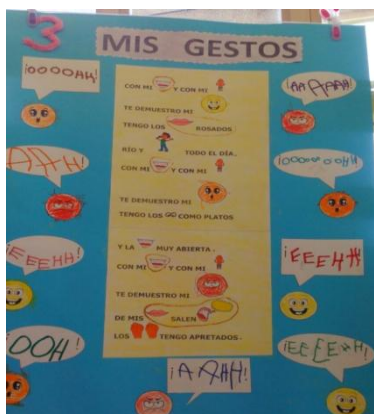 3
MIS GESTOS
¡OOOOAH!
AAAAAH!
CON MI Y CON MI
TE DEMUESTRO MI
TENGO LOS ROSADOS
RÍO Y TODO EL DÍA.
CON MI Y CON MI
TE DEMUESTRO MI
TENGO LOS COMO PLATOS
Y LA MUY ABIERTA.
CON MI Y CON MI
TE DEMUESTRO MI
DE MIS SALEN
LOS TENGO APRETADOS.
AAH!
EEEHH!
¡EEEHH!
OOH!
¡AAHH!